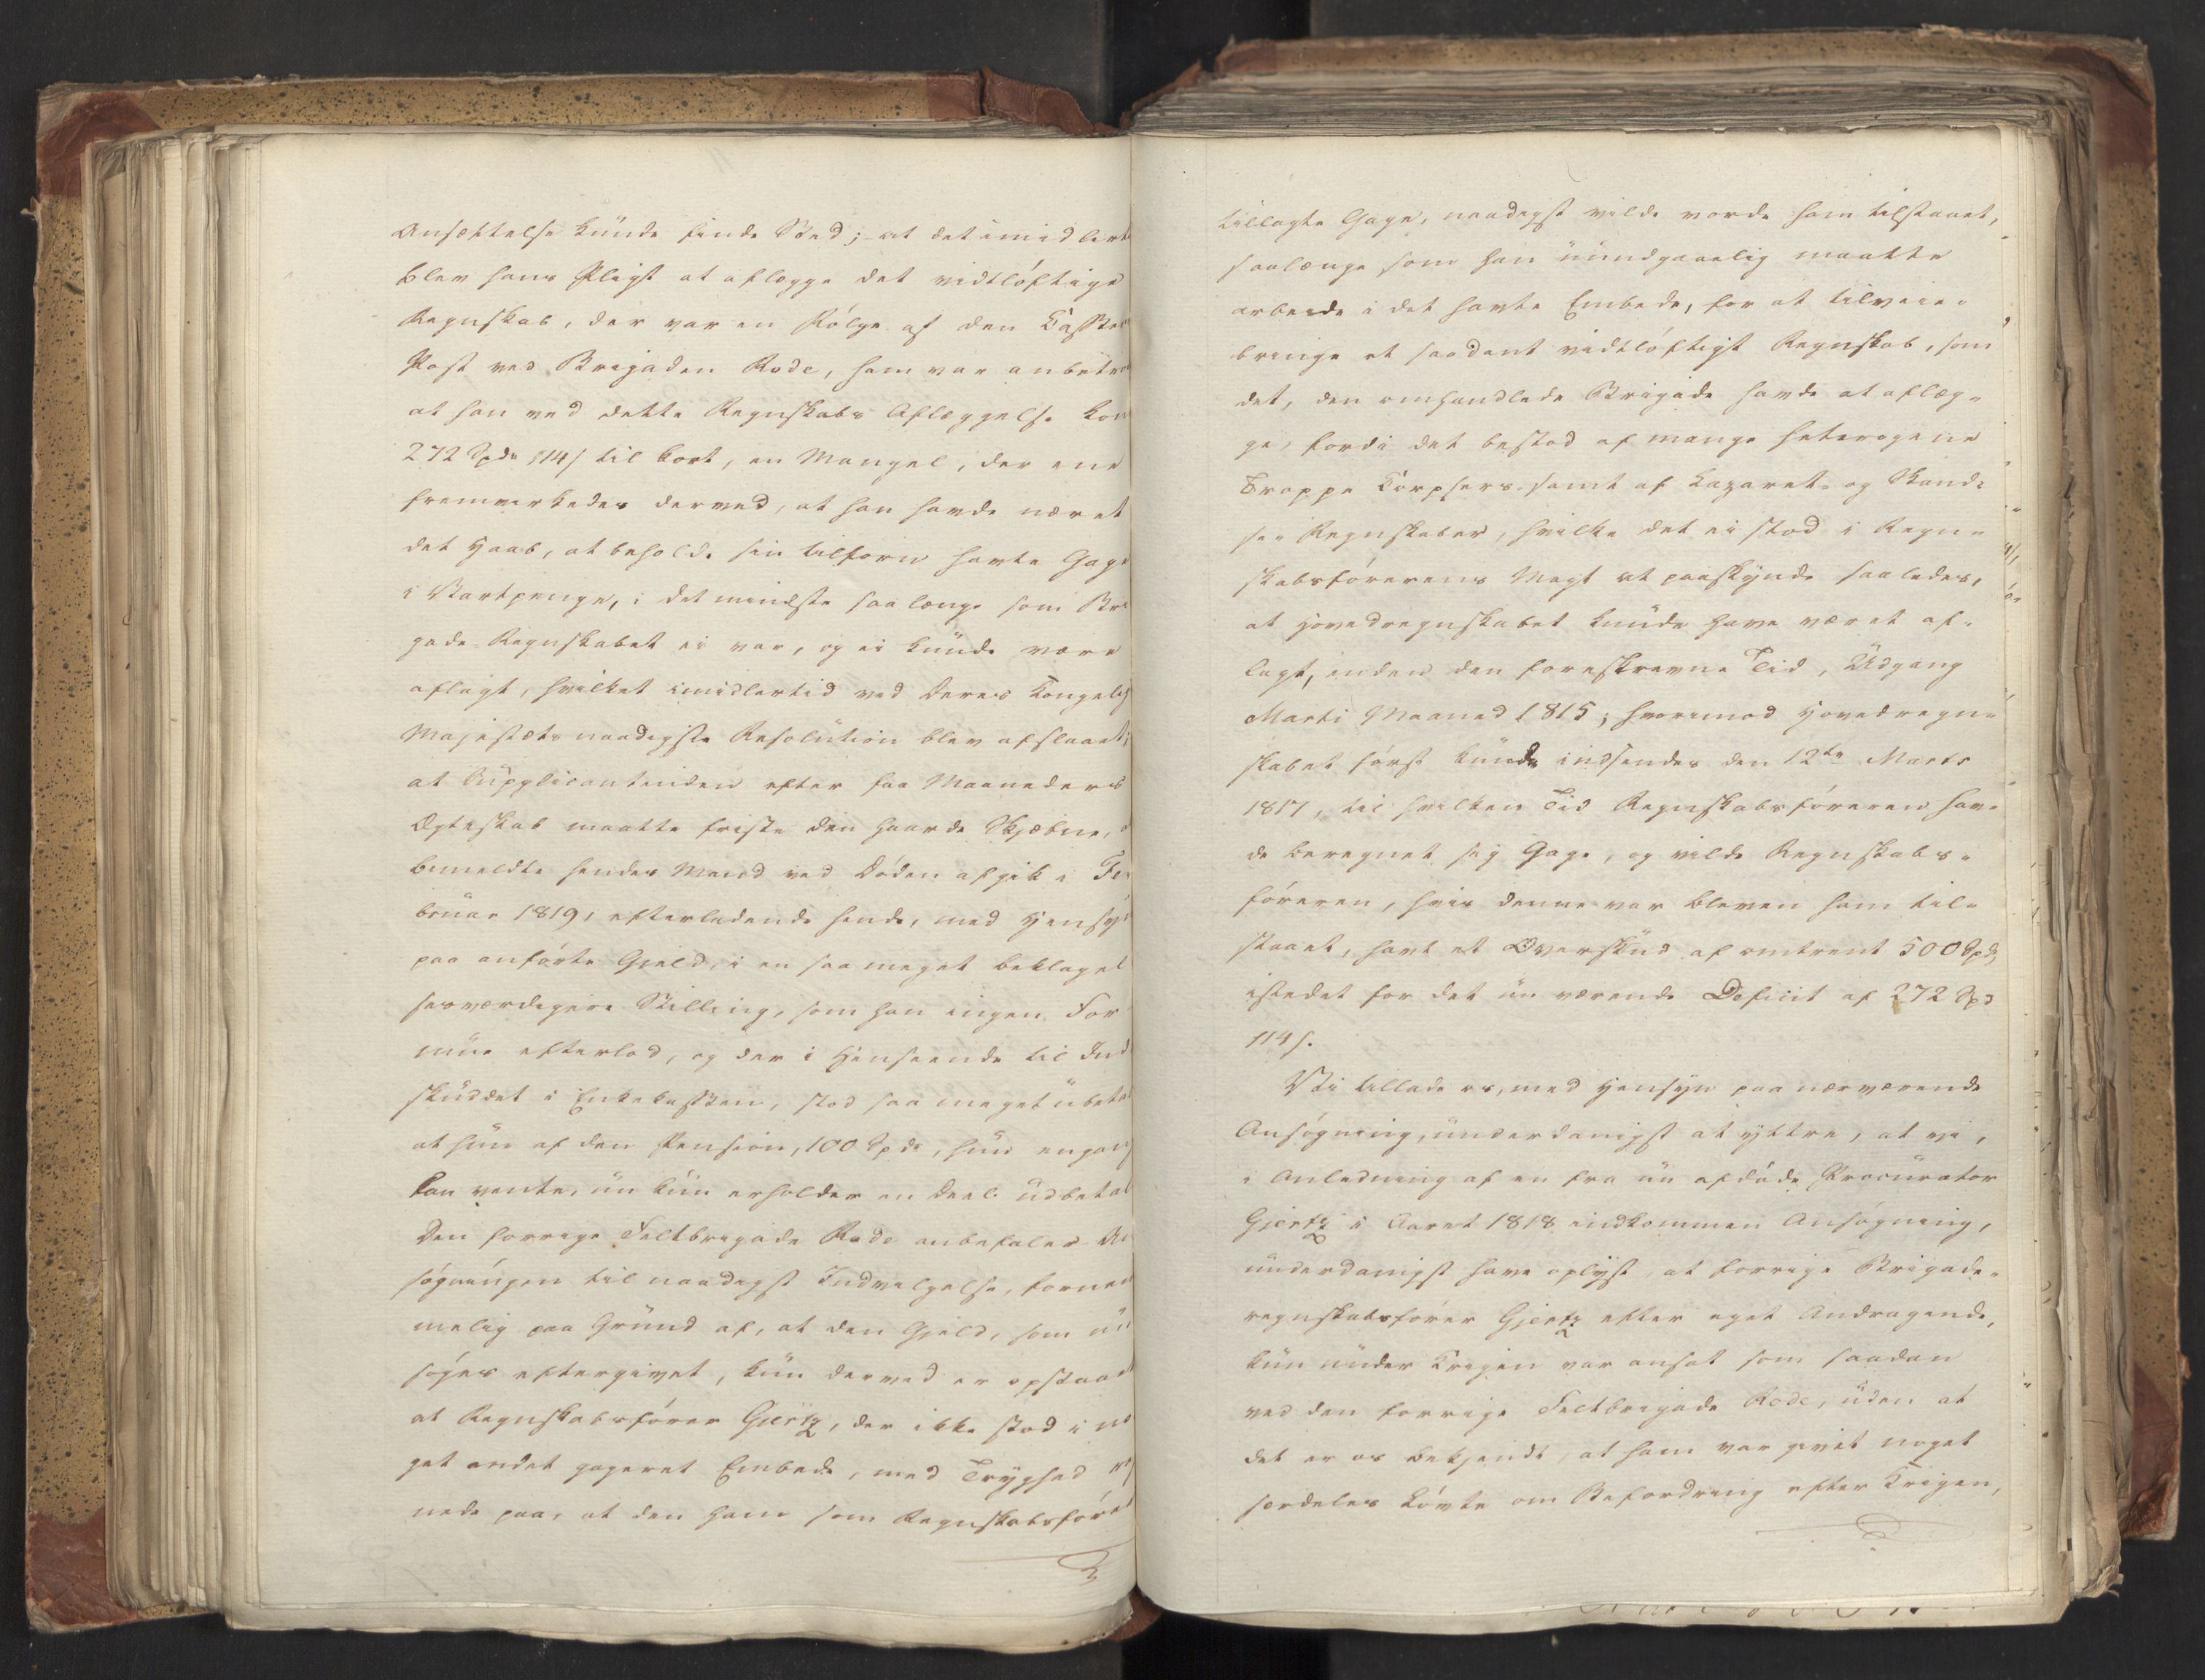 Ansættelse kunde finde Sted; at det imidlert
blev hans Pligt at aflægge det vidtløftige
Regnskab, der var en Følge af den Casse
Post ved Brigaden Rode, ham var anbetroe
at han ved dette Regnskabs Aflæggelse kom
272 Spd 114 s til kort, en Mangel, der ene
fremvirkedes derved, at han havde næret
det Haab, at beholde sin tilforn havte Gage
i Vartpenge, i det mindste saa længe som Bri
gade-Regnskabet ei var, og ei kunde være
aflagt, hvilket imidlertid ved Deres Kongelig
Majestæts naadigste Resolution blev afslaaet;
at Supplicantinden efter faa Maaneders
Ægteskab maatte friste den haarde Skjæbne,
bemeldte hendes Mand ved Døden afgik i Fe
bruar 1819, efterladende hende, med Hensyn
paa anførte Gjeld, i en saa meget beklagel
sesværdigere Stilling, som han ingen For
mue efterlod, og der i Henseende til Ind
skuddet i Enkekassen, stod saa meget ubetal
at hun af den Pension, 100 Spd, hun engang
kan vente, nu kun erholder en Deel udbetal
Den forrige Feltbrigade Rode anbefaler An
søgningen til naadigst Indvilgelse, fornem
melig paa Grund af, at den Gjeld, som nu
søges eftergivet, kun derved er opstaaet
at Regnskabsfører Gjertz, der ikke stod i no
get andet gageret Embede, med Tryghed
nede paa, at den ham som Regnskabsfører
tillagte Gage, naadigst vilde vorde ham tilstaaet,
saalænge som han uundgaaelig maatte
arbeide i det havte Embede, for at tilveie-
bringe et saadant vidtløftigt Regnskab, som
det, den omhandlede Brigade havde at aflæg-
ge, fordi det bestod af mange heterogene
Troppe Corpsers samt af Lazaret- og Skand-
se- Regnskaber, hvilke det ei stod i Regn-
skabsførerens Magt at paaskynde saaledes,
at Hovedregnskabet kunde have været af-
lagt, inden den foreskrevne Tid, Udgang
Marti Maaned 1815; hvorimod Hovedregn-
skabet først kunde indsendes den 12te Marts
1817, til hvilken Tid Regnskabsføreren hav-
de beregnet sig Gage, og vilde Regnskabs-
føreren, hvis denne var bleven ham til-
staaet, havt et Overskud af omtrent 500 Spd
istedet for det nu værende Deficit af 272 Spd
114 s.
Vi tillade os, med Hensyn paa nærværende
Ansøgning, underdanigst at yttre, at vi,
i Anledning af en fra nu afdøde Procurator
Gjertz i Aaret 1818 indkommen Ansøgning,
underdanigst have oplyst, at forrige Brigade-
regnskabsfører Gjertz efter eget Andragende,
kun under Krigen var ansat som saadan
ved den forrige Feltbrigade Rode, uden at
det er os bekjendt, at ham var givet noget
særdeles Løvte om Befordring efter Krigen,